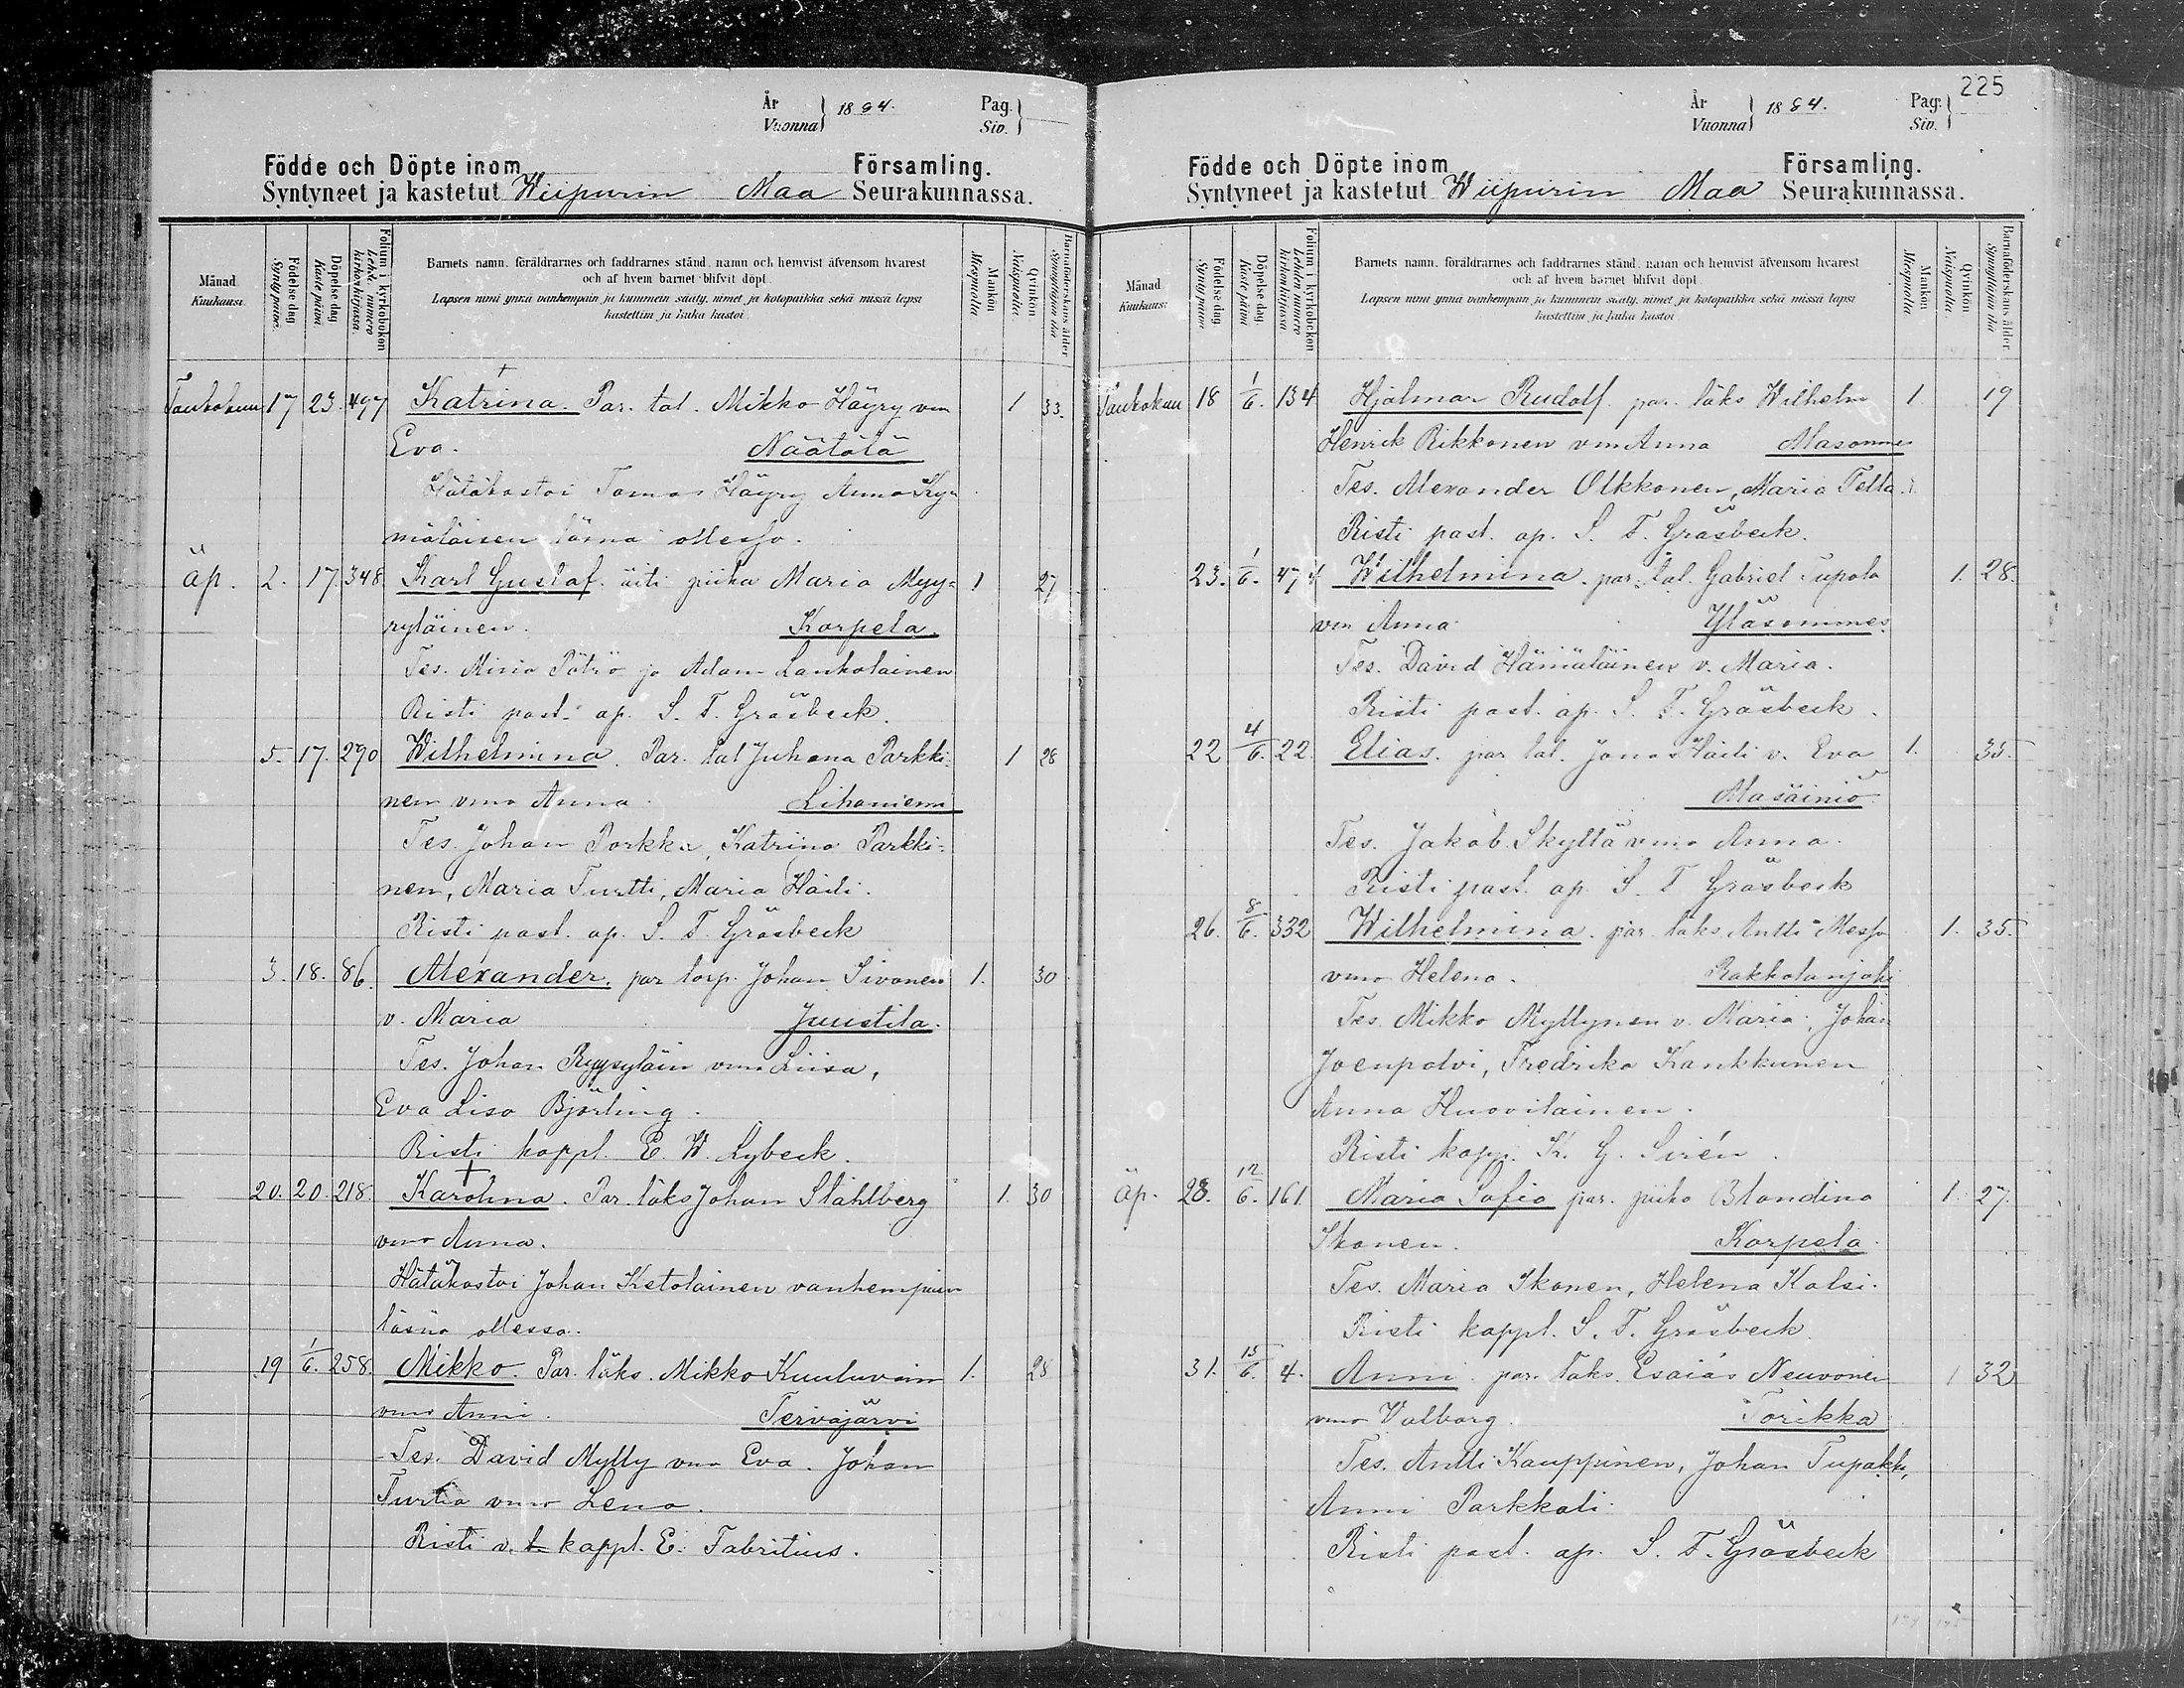 År
Vuonna } 1884.
Pag.
Siv. }
Födde och Döpte inom Församling.
Syntyneet ja kastetut Wiipurin Maa Seurakunnassa.
Månad
Kuukausi.
Födelse dag
Syntypäivä.
Döpelse dag
Kaste päivä
Folium i kyrkoboken
Lehden numero
kirkonkirjassa.
Barnets namn, föräldrarnes och faddrarnes stånd, namn och hemvist äfvensom hvarest
och af hvem barnet blifvit döpt.
Lapsen nimi ynnä vanhempain ja kummein sääty, nimet ja kotopaikka sekä missä lapsi
kastettiin ja kuka kastoi
Mankön
Miespuolia.
Qvinkön
Naispuolia.
Barnaföderskans ålder
Synnyttäjän ikä
Toukokuu 17 23. 497 Katrina. Par. tal. Mikko Häyry vm 1 33.
Eva. Näätälä
Hätäkastoi Tomas Häyry Anna Ky-
mäläisen läsnä ollessa.
äp. 2. 17. 348 Karl Gustaf. äiti piika Maria Myy= 1 27
ryläinen. Korpela.
Tes. Miina Pätrö ja Adam Lankolainen
Risti past. ap. S. F. Gräsbeck.
5. 17. 290 Wilhelmina. Par. tal Juhana Parkki= 1 28
nen vmo Anna. Lihaniemi
Tes. Johan Porkka, Katriina Parkki=
nen, Maria Turtti, Maria Häiti.
Risti past. ap. S. F. Gräsbeck
3. 18. 86. Alexander. par torp. Johan Sivonen 1. 30
v. Maria Juustila.
Tes. Johan Ryysyläin vmo Liisa,
Eva Lisa Björling.
Risti kappl. E. W. Lybeck.
20. 20. 218. Karolina. Par. läks Johan Ståhlberg 1. 30
vmo Anna.
Hätäkastoi Johan Ketolainen vanhempain
läsnä ollessa.
19 1/6. 258. Mikko. Par. läks. Mikko Kuuluvain 1. 28
vmo Anni. Tervajärvi
Tes. David Mylly vmo Eva. Johan
Turtia vmo Lena.
Risti v. kappl. E. Fabritius.
225
År
Vuonna } 1884.
Pag.
Siv. }
Födde och Döpte inom Församling.
Syntyneet ja kastetut Wiipurin Maa Seurakunnassa.
Månad
Kuukausi
Födelse dag
Syntypäivä
Döpelse dag.
Kaste päivä
Folium i kyrkoboken
Lehden numero
kirkonkirjassa
Barnets namn, föräldrarnes och faddrarnes stånd, namn och hemvist äfvensom hvarest
och af hvem barnet blifvit döpt
Lapsen nimi ynnä vanhempain ja kummein sääty, nimet ja kotopaikka sekä missä lapsi
kastettiin ja kuka kastoi
Mankön
Miespuolia
Qvinkön
Naispuolia.
Barnaföderskans ålder
Synnyttäjän ikä
Toukokuu 18 1/6. 134 Hjalmar Rudolf par. läks Wilhelm 1. 19
Henrik Rikkonen vm Anna Alasomme
Tes. Alexander Olkkonen, Maria Telta.
Risti past. ap. S. F. Gräsbeck.
23. 1/6. 474 Wilhelmina. par. tal. Gabriel Tupala 1. 28.
vm Anna Yläsommee
Tes. David Hämäläinen v. Maria.
Risti past. ap. S. F. Gräsbeck.
22 4/6. 22. Elias. par tal. Jonas Häiti v. Eva 1. 35.
Alasäiniö
Tes. Jakob Skyttä vmo Anna.
Risti past. ap. S. F. Gräsbeck
26. 8/6. 332 Wilhelmina. par. läks Antti Messo 1. 35.
vmo Helena. Rakkolanjoki
Tes. Mikko Myllynen v. Maria, Johan
Joenpolvi, Fredrika Kankkunen
Anna Huovilainen.
Risti kapp. K. G. Sirén.
äp. 28. 12/6. 161. Maria Sofia par. piika Blondina 1. 27.
Ikonen. Korpela.
Tes. Maria Ikonen, Helena Kalsi.
Risti kappl. S. F. Gräsbeck.
31. 15/6. 4. Anni. par. läks. Esaias Neuvonen 1 32
vmo Valborg. Torikka
Tes. Antti Kauppinen, Johan Tupakk,
Anni Parkkali.
Risti past. ap. S. F. Gräsbeck